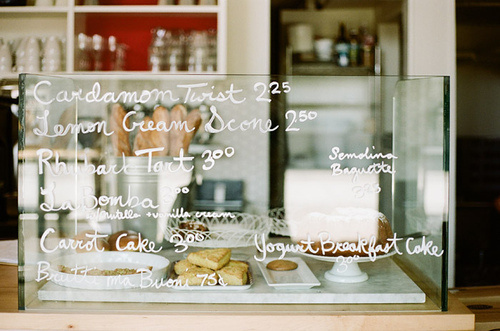 Cardamom Twist 2.25
Lemon Cream Scone 2.50
Rhubarb Tart 3.00
Semolina
Baguette
La Bomba 3.00
w/ nutella + vanilla cream
Carrot Cake 3.00
Yogurt Breakfast Cake
3.00
Brutti ma Buoni 75¢